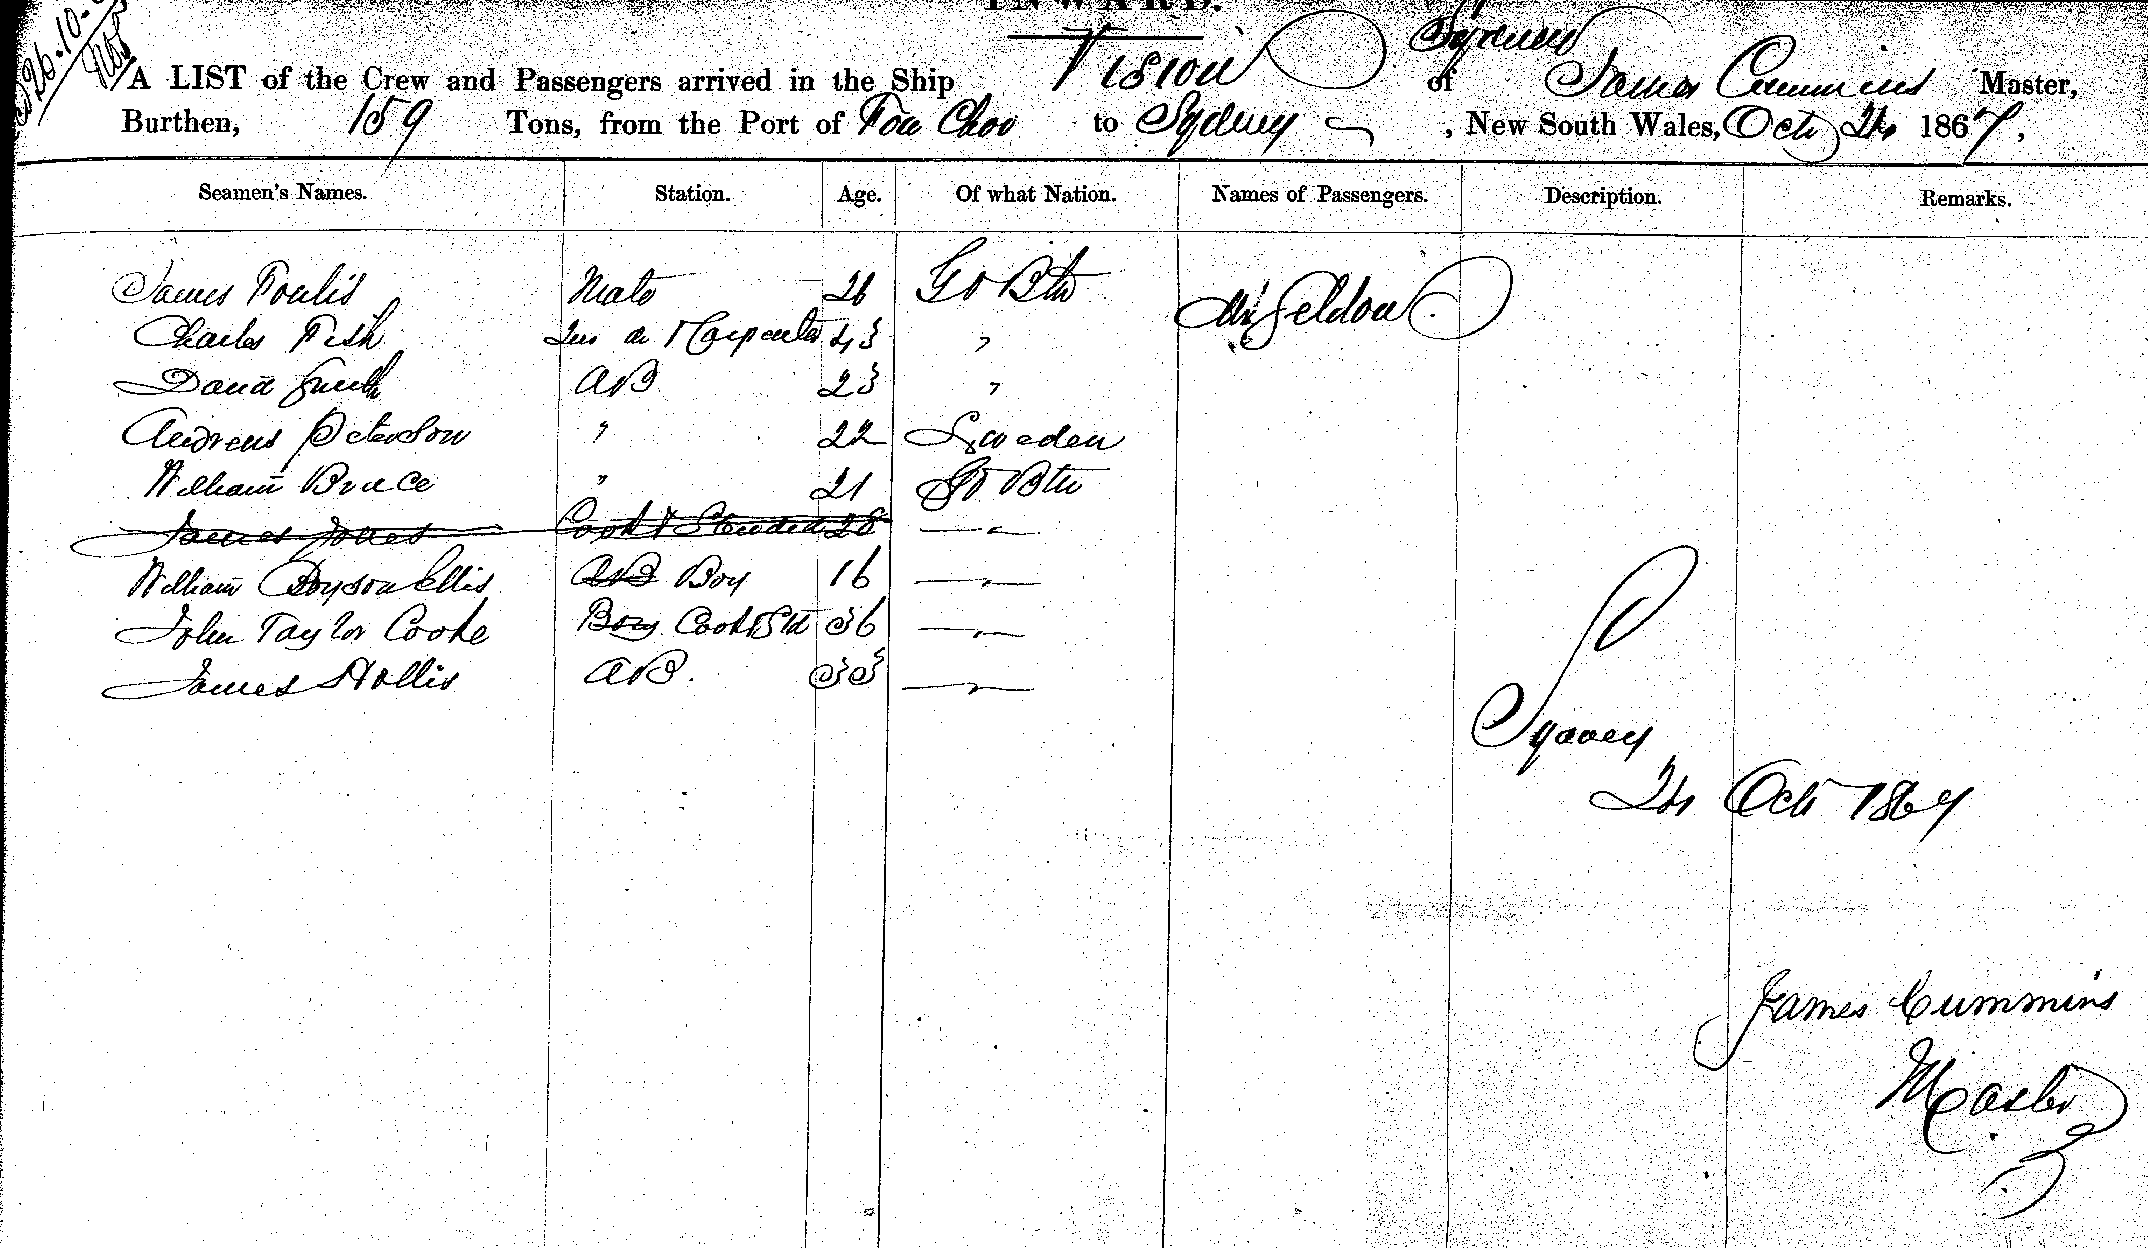 INWARD.
26.10.
A LIST of the Crew and Passengers arrived in the Ship Vision of Sydney James Cummins Master,
Burthen, 159 Tons, from the Port of Foo Choo to Sydney, New South Wales, Oct 1867,
Seamen's Names. Station. Age. Of what Nation. Names of Passengers. Description. Remarks.
James Foulis Mate 26 Gt Btn Mr Seldon
Charles Fish Carpenter 43 "
David Smith AB 23 "
Andreus Peterson " 22 Sweden
William Bruce " 21 Gt Btn
James Jones Cook & Steward 28 "
William Boyson Ellis AB Boy 16 "
John Taylor Cooke Boy Cook & Std 36 "
James Hollis AB. 33 "
Sydney
Oct 1867
James Cummins
Master